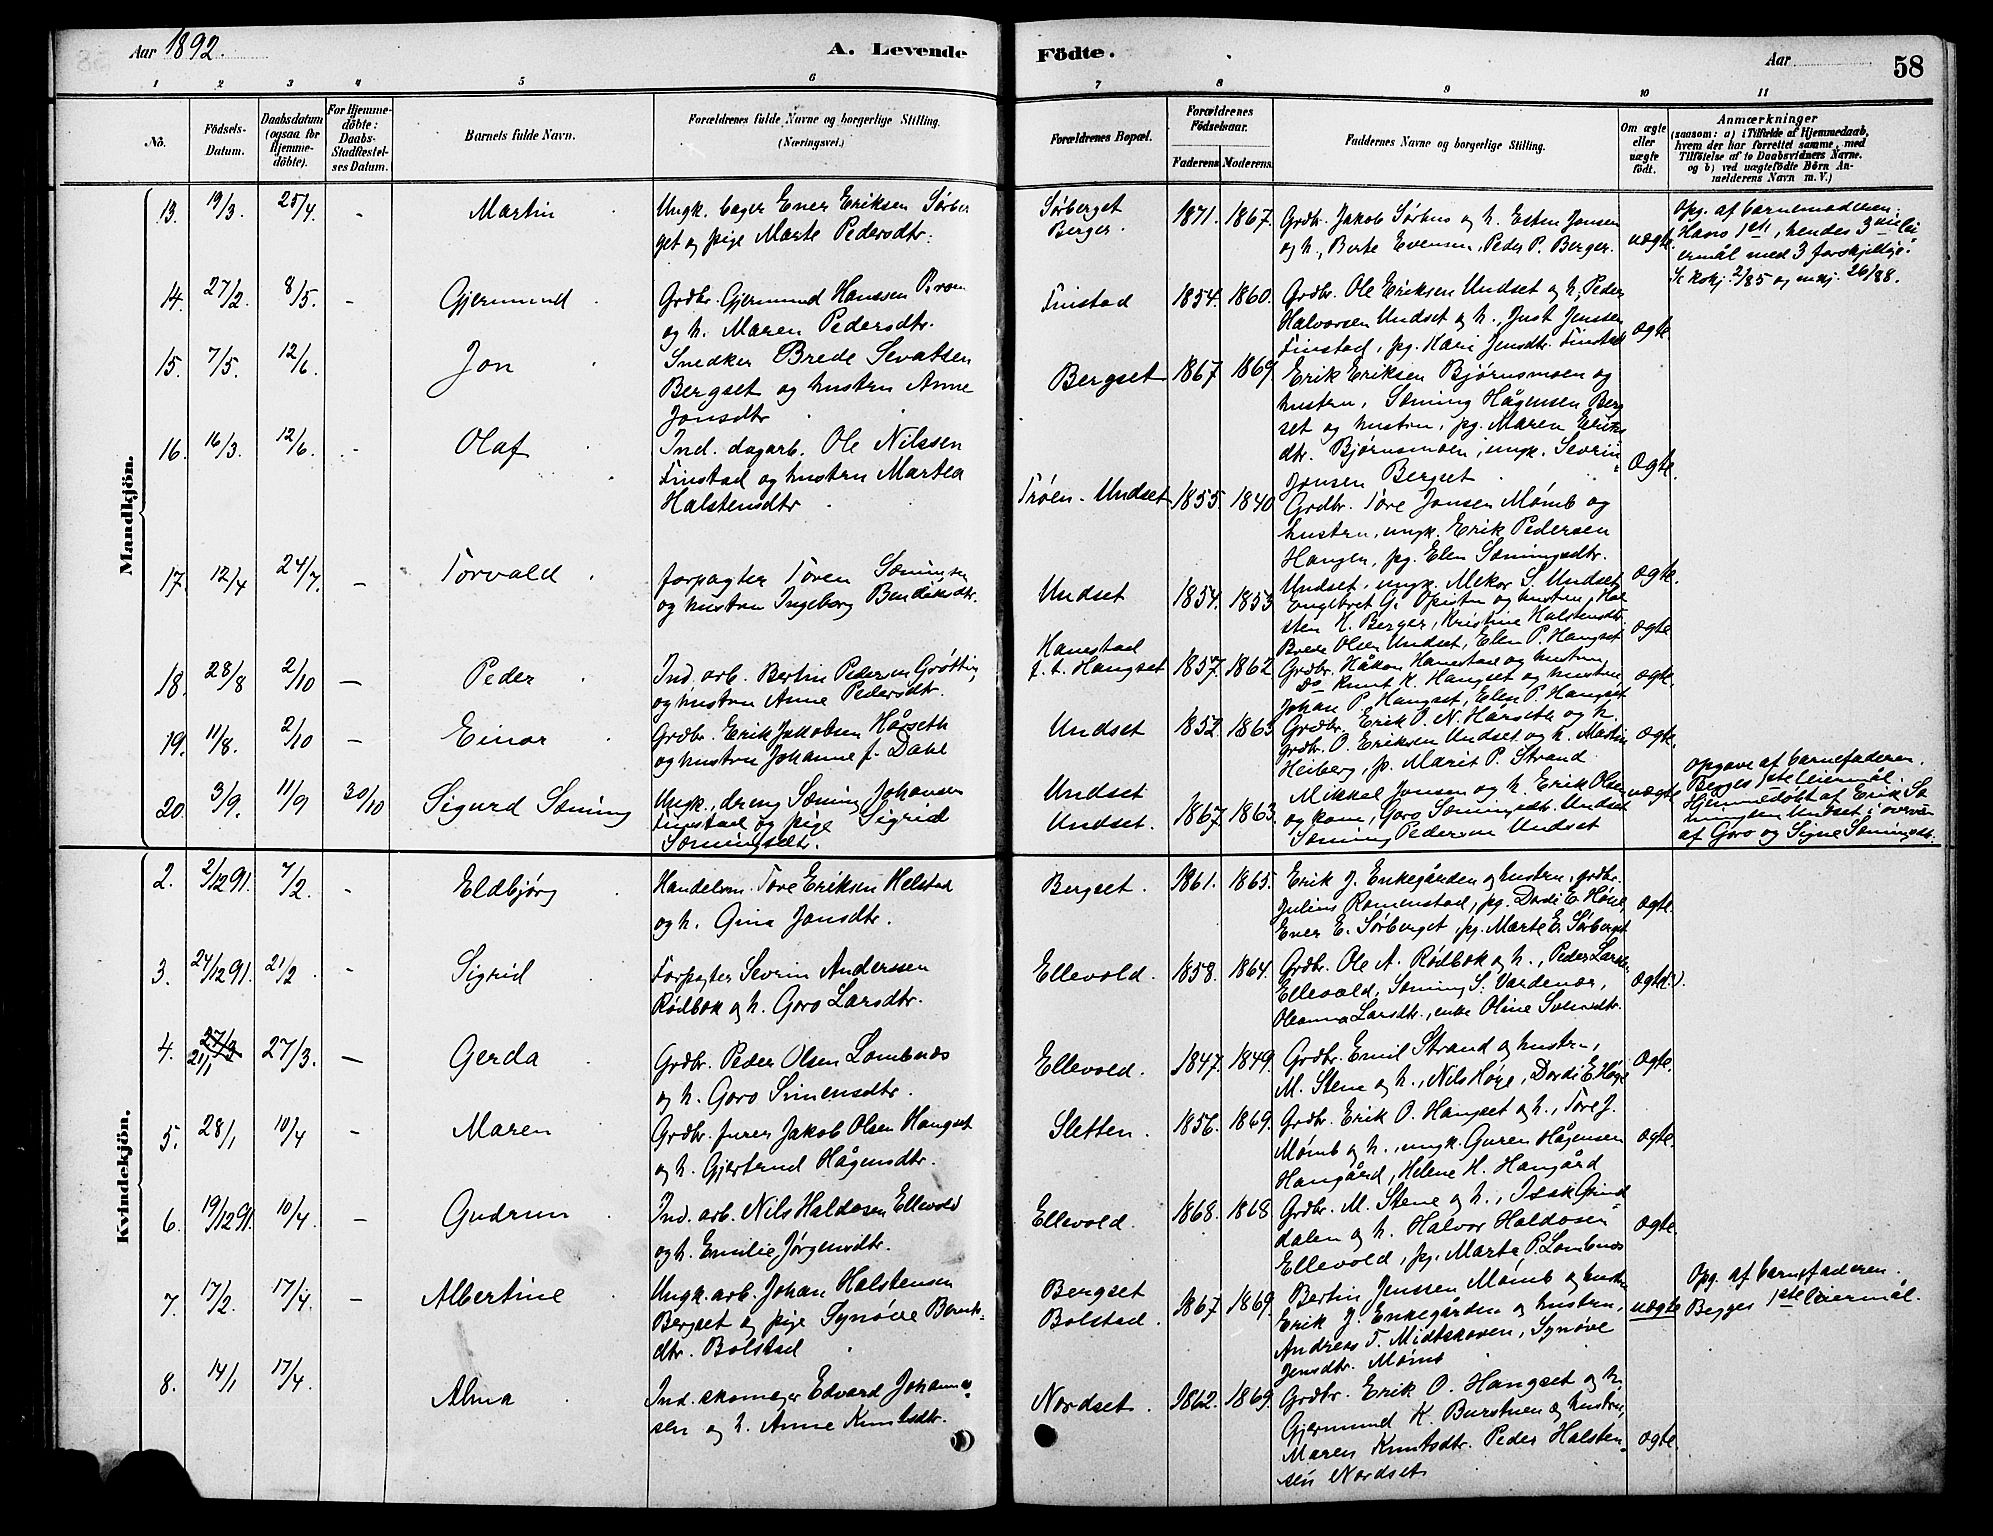 Aar 1892.
A. Levende
Födte.
Aar
58
1 2 3 4 5 6
7 8 9 10 11
No.
Födsels-
Datum.
Daabsdatum
(ogsaa for
Hjemme-
döbte).
For Hjemme-
döbte:
Daabs-
Stadfæstel-
ses Datum.
Barnets fulde Navn.
Forældrenes fulde Navne og borgerlige Stilling.
(Næringsvei.)
Forældrenes Bopæl.
Forældrenes
Födselsaar.
Faderens. Moderens.
Faddernes Navne og borgerlige Stilling.
Om ægte
eller
uægte
födt.
Anmærkninger
(saasom: a) i Tilfælde af Hjemmedaab,
hvem der har forrettet samme, med
Tilföielse af to Daabsvidners Navne.
og b) ved uægtefödte Börn An-
melderens Navn m. V.)
Mandkjön.
13. 19/3. 25/4. - Martin
Ungk. bager Ener Eriksen Sørber
get og pige Marte Pedersdtr.
Sørberget
Berger.
1871. 1867.
Grdbr. Jakob Sørhus og h. Esten Jonsen
og h., Berte Evensen, Peder P. Berger.
uægte.
Opg. af barnemoderen.
Hans 1ste, hendes 3die lei
ermål med 3 forskjellige.
14. 27/2. 8/5. - Gjermund
Grdbr. Gjermund Hanssen
og h. Maren Pedersdtr.
Finstad
1854. 1860.
Grdbr. Ole Eriksen Undset og h., Peder
Halvorsen Undset og h., Just Jenssen
Finstad, pg. Kari Jensdtr. Finstad
ægte.
15. 7/5. 12/6. Jon
Snedker Brede Sevatsen
Bergset og hustru Anne
Jonsdtr.
Bergset
1867 1869
Erik Eriksen Bjørnsmoen og
hustru, Sæming Hågensen Berg
set og hustru, pg. Maren Eriks
dtr. Bjørnsmoen, ungk. Sevrin
Jonsen Bergset
ægte.
16. 16/3. 12/6. - Olaf
Ind. dagarb. Ole Nilssen
Finstad og hustru Martea
Halstensdtr.
Trøen - Undset
1855. 1840
Grdbr. Tore Jonsen Mømb og
hustru, ungk. Erik Pedersen
Hangen, pg. Elen Sæmingsdtr.
Undset, ungk. Mekor S. Undset
ægte.
17. 12/4 24/7. - Torvald
forpagter Toren Sæmingsen
og hustru Ingeborg Bendiksdtr.
Undset
1854. 1853
Engebret G. Opistu og hustru, Hal
sten H. Berger, Kristine Halstensdtr.
Brede Olsen Undset, Elen P. Hangset
ægte
18. 28/8 2/10 - Peder
Ind. arb. Bertin Pedersen Grøtting
og hustru Anne Pedersdtr.
Hanestad
f. t. Hangset
1857. 1862
Grdbr. Håkon Hanestad og hustru,
Do Knut K. Hangset og hustru
Johan P. Hangset, Elen P. Hangset
ægte.
19. 11/8. 2/10 - Einar
Grdbr. Erik Jakobsen Hårseth
og hustru Johanne f. Dahl
Undset
1852. 1863
Grdbr. Erik O. N. Hårseth og h.
grdbr. O. Eriksen Undset og h. Martin
Heiberg, p. Marit P. Strand
ægte.
20. 3/9. 11/9 30/10 Sigurd Sæming
Ungk., dreng Sæming Johansen
Finstad og pige Sigrid
Sæmingsdtr.
Undset
Undset.
1867 1863.
Mikkel Jonsen og h. Erik Olsen
og kone, Goro Sæmingsdtr. Undset
Sæming Pedersen Undset
uægte
Opgave af barnefaderen.
Begges 1ste leiermål.
Hjemmedøbt af Erik Sæ
mingsen Undset i overvær
af Goro og Signe Sæmingsdtr.
Kvindekjön.
2. 2/12 91. 7/2. - Eldbjørg
Handelsm. Tore Eriksen Helstad
og h. Gina Jonsdtr.
Bergset.
1861. 1865.
Erik J. Enkegården og hustru, grdbr.
Julius Romenstad, pg. Dordi E. Høye,
Ener E. Sørberget, pg. Marte E. Sørberget
ægte.
3. 24/12 91. 21/2 - Sigrid
Forpagter Sevrin Anderssen
Rødbok og h. Goro Larsdtr.
Ellevold.
1858. 1864.
Grdbr. Ole A. Rødbok og h., Peder Larsen
Ellevold, Sæming S. Vardenær,
Oleanna Larsdtr., enke Oline
ægte
4. 27/3 21/1 27/3. - Gerda
Grdbr. Peder Olsen Lombnæs
og h. Goro Simensdtr.
Ellevold.
1847. 1849.
Grdbr. Emil Strand og hustru,
M. Stene og h., Nils Høye, Dordi E. Høye
ægte.
5. 28/1 10/4 - Maren
Grdbr. Jakob Olsen Hangset
og h. Gjertrud Hågensdtr.
Sletten.
1856. 1869.
Grdbr. Erik O. Hangset og h., Tore J.
Mømb og h., ungk. Guren Hågensen
Hangård, Helene H. Hangård
ægte.
6. 19/12 91. 10/4. - Gudrun
Ind. arb. Nils Haldosen Ellevold
og h. Emilie Jørgensdtr.
Ellevold.
1868. 1868
Grdbr. M. Stene og h., Isak Grind
dalen og h. Halvor Haldosen
Ellevold, pg. Marte P. Lombnæs
ægte.
7. 17/2. 17/4 - Albertine
Ungk. arb. Johan Halstensen
Bergset og pige Synøve
dtr. Bolstad
Bergset
Bolstad.
1867 1869.
Bertin Jenssen Mømb og hustru
Erik J. Enkegården og hustru,
Andreas T. Midtskoven, Synøve
Jensdtr. Mømb
uægte
Opg. af barnefaderen.
Begges 1ste leiermål.
8. 14/1 17/4. Alma
Ind. skomager Edvard Johanne
sen og h. Anne Knutsdtr.
Nordset.
1862. 1869.
Grdbr. Erik O. Hangset og h.
Gjermund K. Burstuen og hustru,
Maren Knutsdtr. Peder Halsten
sen Nordset
ægte.